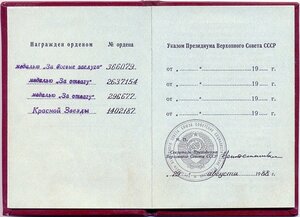 Награжден орденом
№ ордена
медалью „За боевые заслуги"
366079.
медалью „За отвагу"
2637154
медалью „За отвагу"
296677.
Красной Звезды
1402187.
Указом Президиума Верховного Совета СССР
от " 19 г.
от " 19 г.
от " 19 г.
от " 19 г.
Секретарь Президиума
Верховного Совета СССР
августа 1988 г.